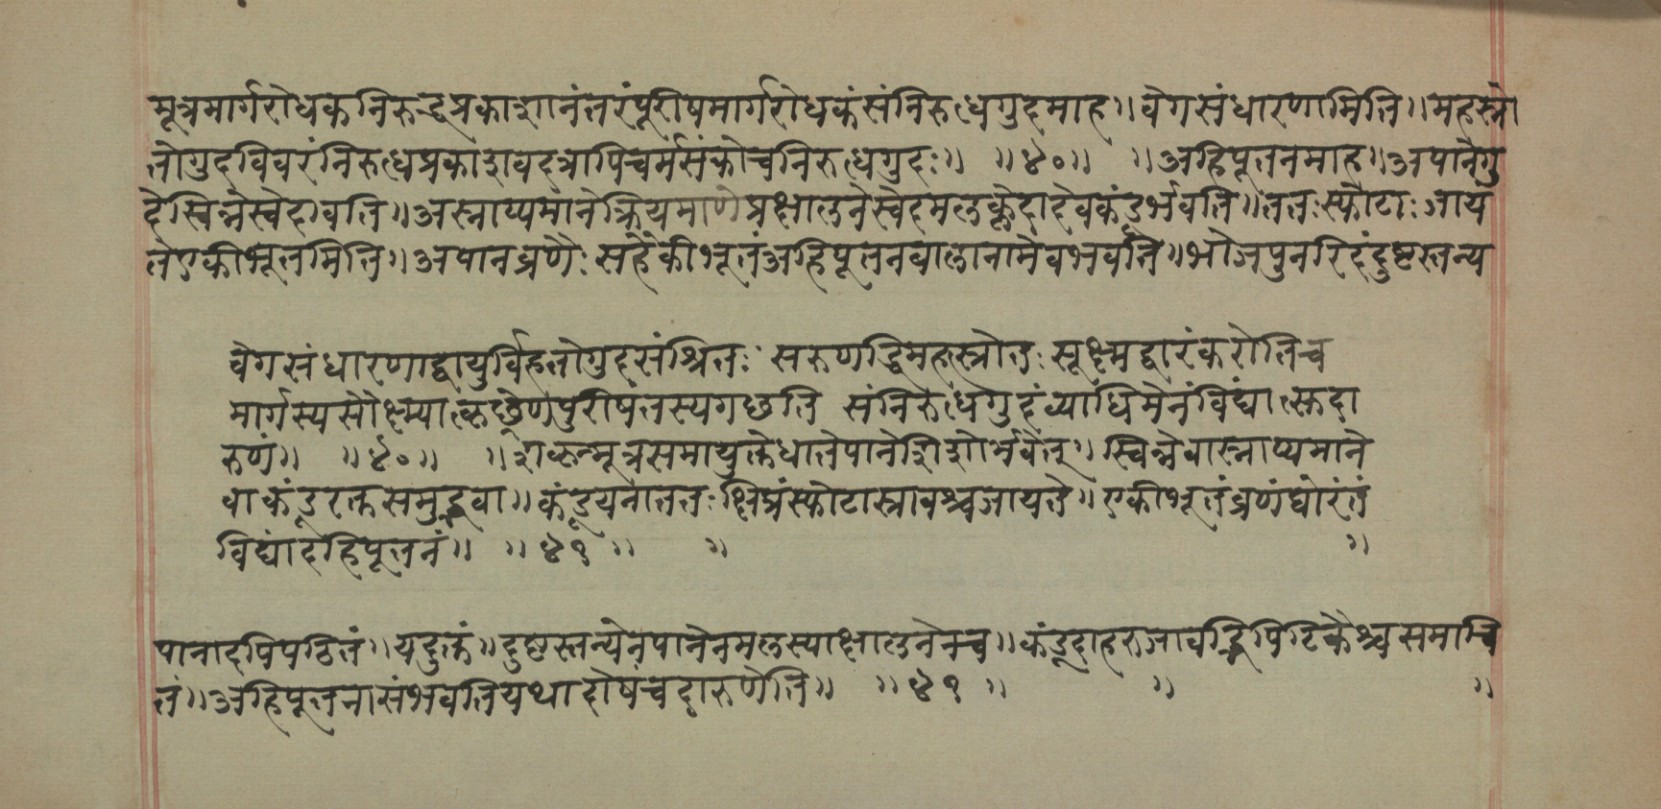 मूत्रमार्गरोधकनिरुद्धप्रकाशानंतरंपूरीषमार्गरोधकंसंनिरुध्धगुदमाह॥वेगसंधारणामिति॥महस्त्रो
तोगुदविवरंनिरुध्धप्रकाशवदत्रापिचर्मसंकोचनिरुध्धगुदः॥ ॥४०॥ ॥अहिपूतनमाह॥अपानेगु
देस्विन्नेस्वेदावति॥अस्नाप्यमानेक्रियमाणेप्रक्षालनेस्वेदमलक्लेदादेवकंडूर्भवति॥ततःस्फोटाःजाय
तेएकीभूतमिति॥अपानव्रणैःसहैकीभूतंअहिपूतनवालानामेवभवति॥भोजपुनरिदंदुष्टस्तन्य
वेगसंधारणाद्वायुर्विहतोगुदसंश्रितः सरुणद्धिमहस्त्रोतः सूक्ष्मद्वारंकरोतिच
मार्गस्यसौक्ष्म्यात्कछ्रेणपुरीषंतस्यगछति संनिरुध्धंगुदंव्याधिमेनंविंद्यात्सदा
रुणं॥ ॥४०॥ ॥शकृन्मूत्रसमायुक्तेधातेपानेशिशोर्भवेत्॥स्विन्नेवास्नाप्यमाने
वाकंडूरक्तसमुद्भवा॥कंडूयनात्ततःक्षिप्रंस्फोटास्त्रावश्चजायते॥एकीभूतंव्रणंघोरंतं
विद्यांदहिपूतनं॥ ॥४१॥ ॥ ॥
पानादपिपठितं॥यदुक्तं॥दुष्टस्तन्येनपानेनमलस्याक्षालनेनच॥कंडूदाहरुजावद्भिपिटिकैश्चसमाचि
तं॥अहिपूतनासंभवतियथादोषंचदारुणेति॥ ॥४१॥ ॥ ॥